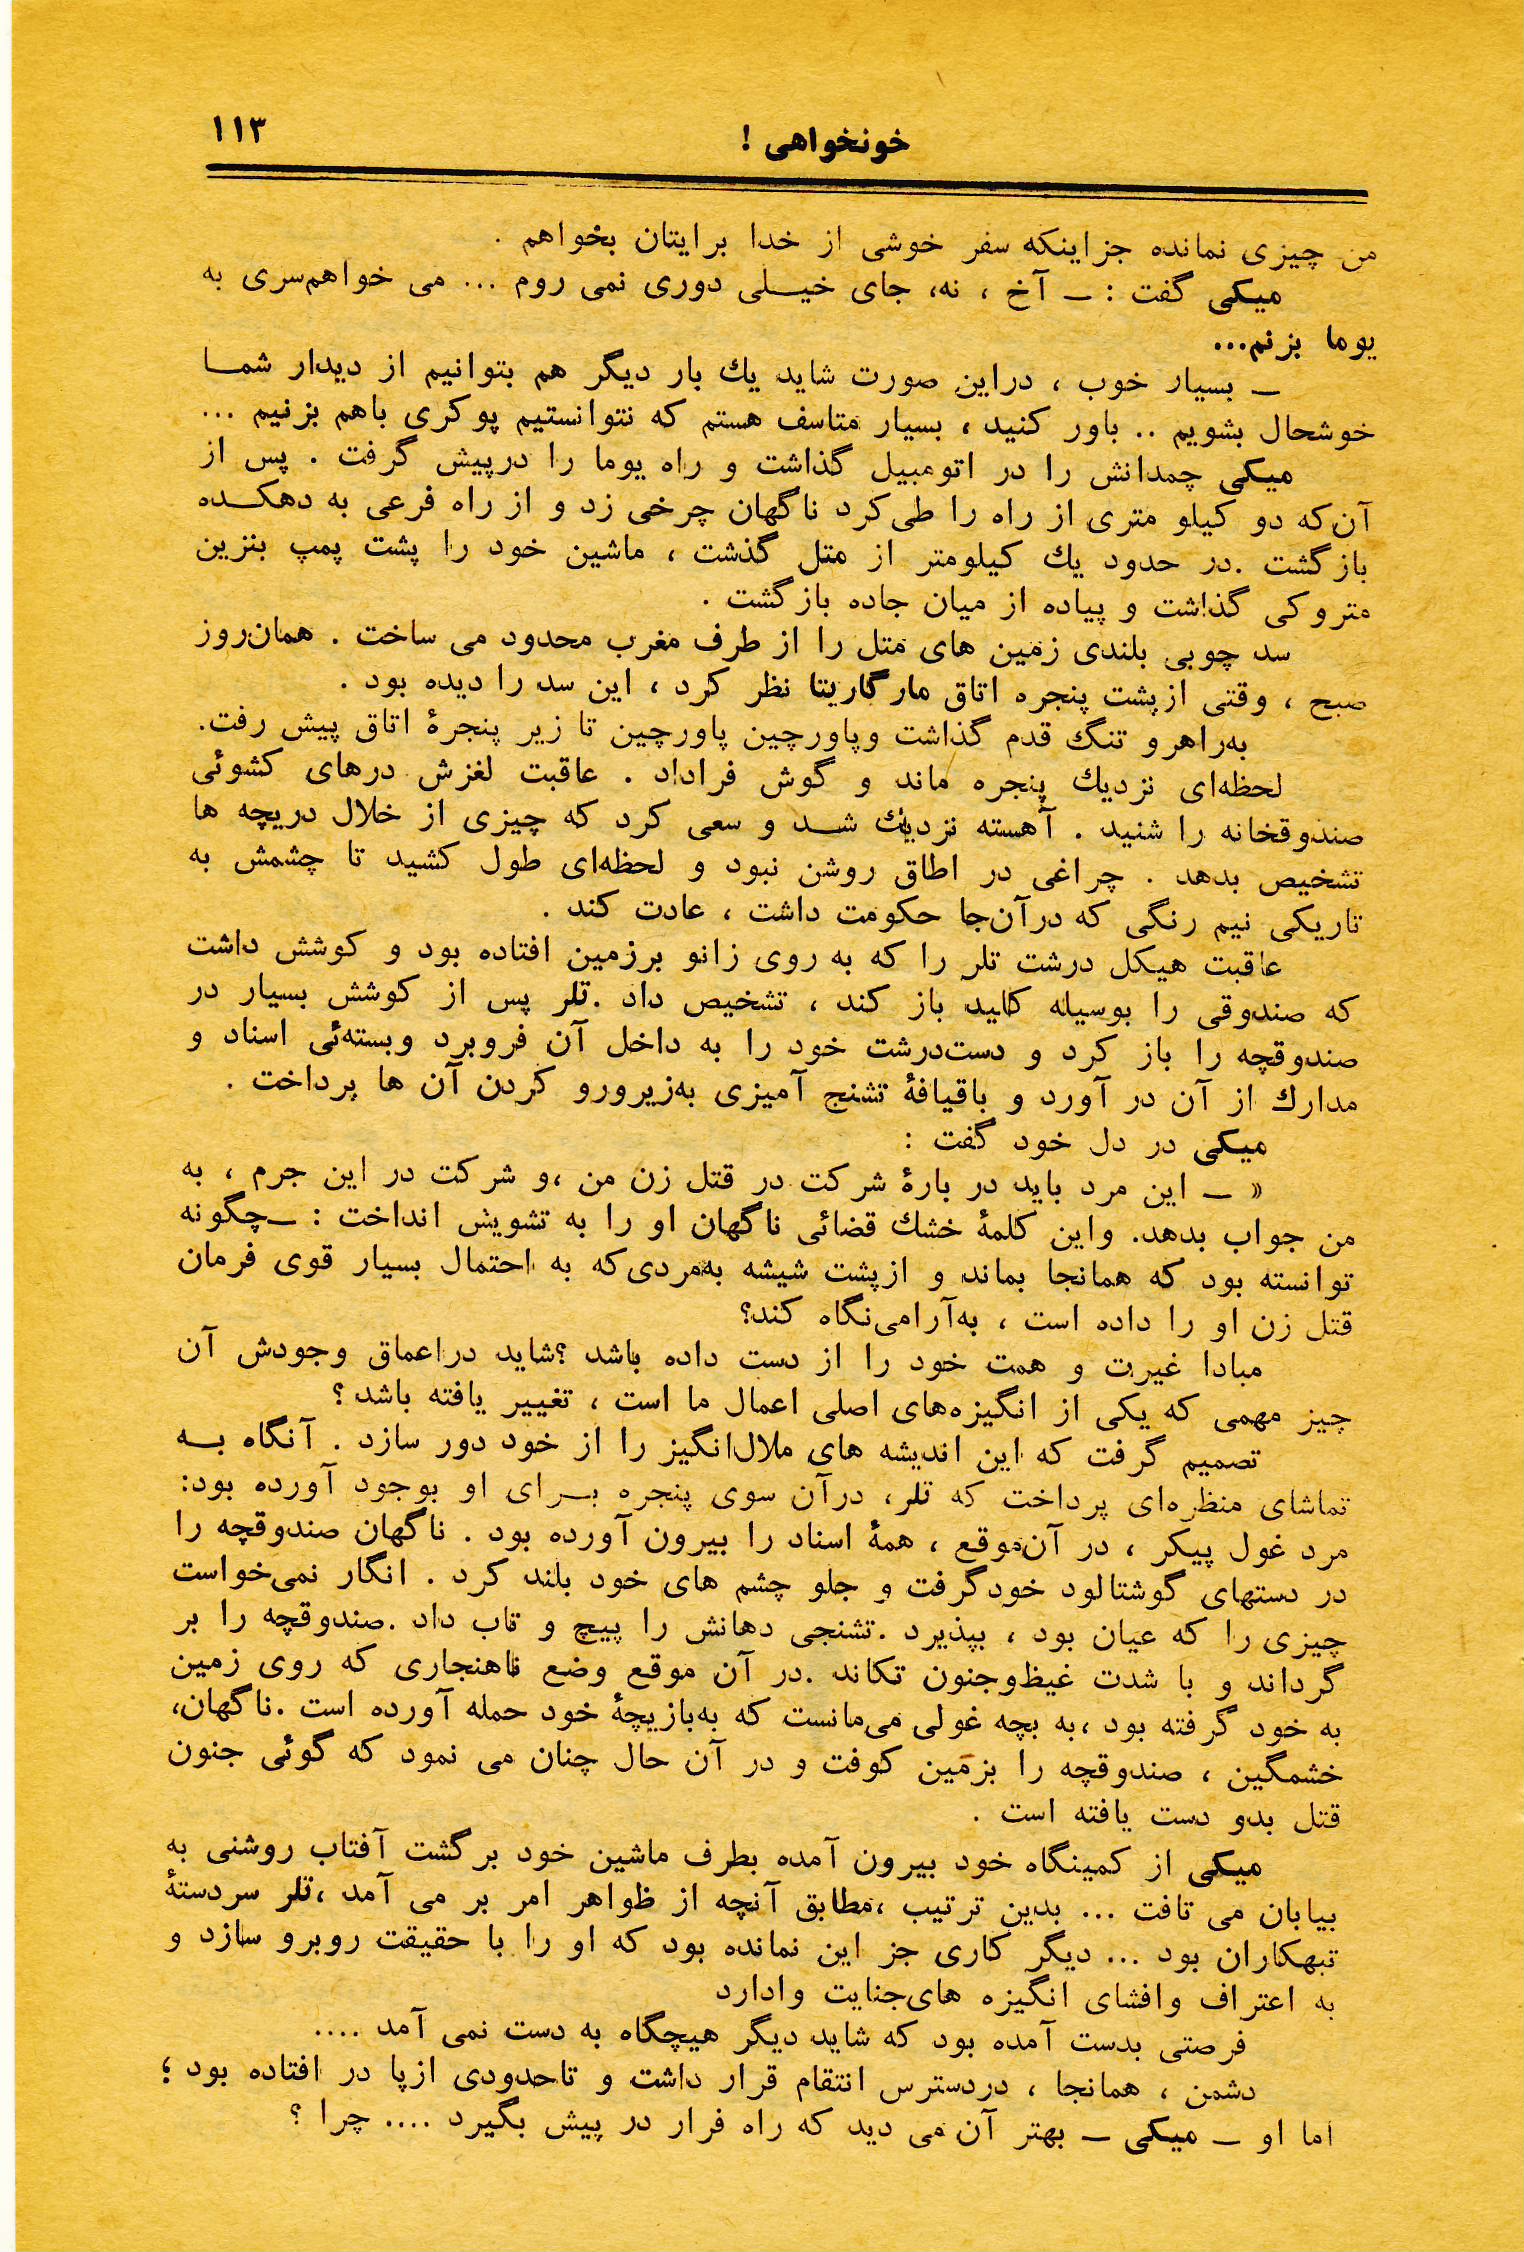 خونخواهی !
۱۱۳
من چیزی نمانده جزاینکه سفر خوشی از خدا برایتان بخواهم .
میکی گفت : ــ آخ ، نه، جای خیــلی دوری نمی روم ... می خواهم‌سری به
یوما بزنم...
ــ بسیار خوب ، دراین صورت شاید یك بار دیگر هم بتوانیم از دیدار شمــا
خوشحال بشویم .. باور کنید ، بسیار متاسف هستم که نتوانستیم پوکری باهم بزنیم ...
میکی چمدانش را در اتومبیل گذاشت و راه یوما را درپیش گرفت . پس از
آن‌که دو کیلو متری از راه را طی‌کرد ناگهان چرخی زد و از راه فرعی به دهکــده
بازگشت .در حدود یك کیلومتر از متل گذشت ، ماشین خود را پشت پمپ بنزین
متروکی گذاشت و پیاده از میان جاده بازگشت .
سد چوبی بلندی زمین های متل را از طرف مغرب محدود می ساخت . همان‌روز
صبح ، وقتی ازپشت پنجره اتاق مارگاریتا نظر کرد ، این سد را دیده بود .
به‌راهرو تنگ قدم گذاشت وپاورچین پاورچین تا زیر پنجرهٔ اتاق پیش رفت.
لحظه‌ای نزدیك پنجره ماند و گوش فراداد . عاقبت لغزش درهای کشوئی
صندوقخانه را شنید . آهسته نزدیك شــد و سعی کرد که چیزی از خلال دریچه ها
تشخیص بدهد . چراغی در اطاق روشن نبود و لحظه‌ای طول کشید تا چشمش به
تاریکی نیم رنگی که درآن‌جا حکومت داشت ، عادت کند .
عاقبت هیکل درشت تلر را که به روی زانو برزمین افتاده بود و کوشش داشت
که صندوقی را بوسیله کلید باز کند ، تشخیص داد .تلر پس از کوشش بسیار در
صندوقچه را باز کرد و دست‌درشت خود را به داخل آن فروبرد وبسته‌ئی اسناد و
مدارك از آن در آورد و باقیافهٔ تشنج آمیزی به‌زیرورو کردن آن ها پرداخت .
میکی در دل خود گفت :
« ــ این مرد باید در بارهٔ شرکت در قتل زن من ،و شرکت در این جرم ، به
من جواب بدهد. واین کلمهٔ خشك قضائی ناگهان او را به تشویش انداخت : ــچگونه
توانسته بود که همانجا بماند و ازپشت شیشه به‌مردی‌که به احتمال بسیار قوی فرمان
قتل زن او را داده است ، به‌آرامی‌نگاه کند؟
مبادا غیرت و همت خود را از دست داده باشد ؟شاید دراعماق وجودش آن
چیز مهمی که یکی از انگیزه‌های اصلی اعمال ما است ، تغییر یافته باشد ؟
تصمیم گرفت که این اندیشه های ملال‌انگیز را از خود دور سازد . آنگاه بــه
تماشای منظره‌ای پرداخت که تلر، درآن سوی پنجره بــرای او بوجود آورده بود:
مرد غول پیکر ، در آن‌موقع ، همهٔ اسناد را بیرون آورده بود . ناگهان صندوقچه را
در دستهای گوشتالود خودگرفت و جلو چشم های خود بلند کرد . انگار نمی‌خواست
چیزی را که عیان بود ، بپذیرد .تشنجی دهانش را پیچ و تاب داد .صندوقچه را بر
گرداند و با شدت غیظ‌وجنون تکاند .در آن موقع وضع ناهنجاری که روی زمین
به خود گرفته بود ،به بچه غولی می‌مانست که به‌بازیچهٔ خود حمله آورده است .ناگهان،
خشمگین ، صندوقچه را بزمین کوفت و در آن حال چنان می نمود که گوئی جنون
قتل بدو دست یافته است .
میکی از کمینگاه خود بیرون آمده بطرف ماشین خود برگشت آفتاب روشنی به
بیابان می تافت ... بدین ترتیب ،مطابق آنچه از ظواهر امر بر می آمد ،تلر سردستهٔ
تبهکاران بود ... دیگر کاری جز این نمانده بود که او را با حقیقت روبرو سازد و
به اعتراف وافشای انگیزه های‌جنایت وادارد
فرصتی بدست آمده بود که شاید دیگر هیچگاه به دست نمی آمد ....
دشمن ، همانجا ، دردسترس انتقام قرار داشت و تاحدودی ازپا در افتاده بود ؛
اما او ــ میکی ــ بهتر آن می دید که راه فرار در پیش بگیرد .... چرا ؟